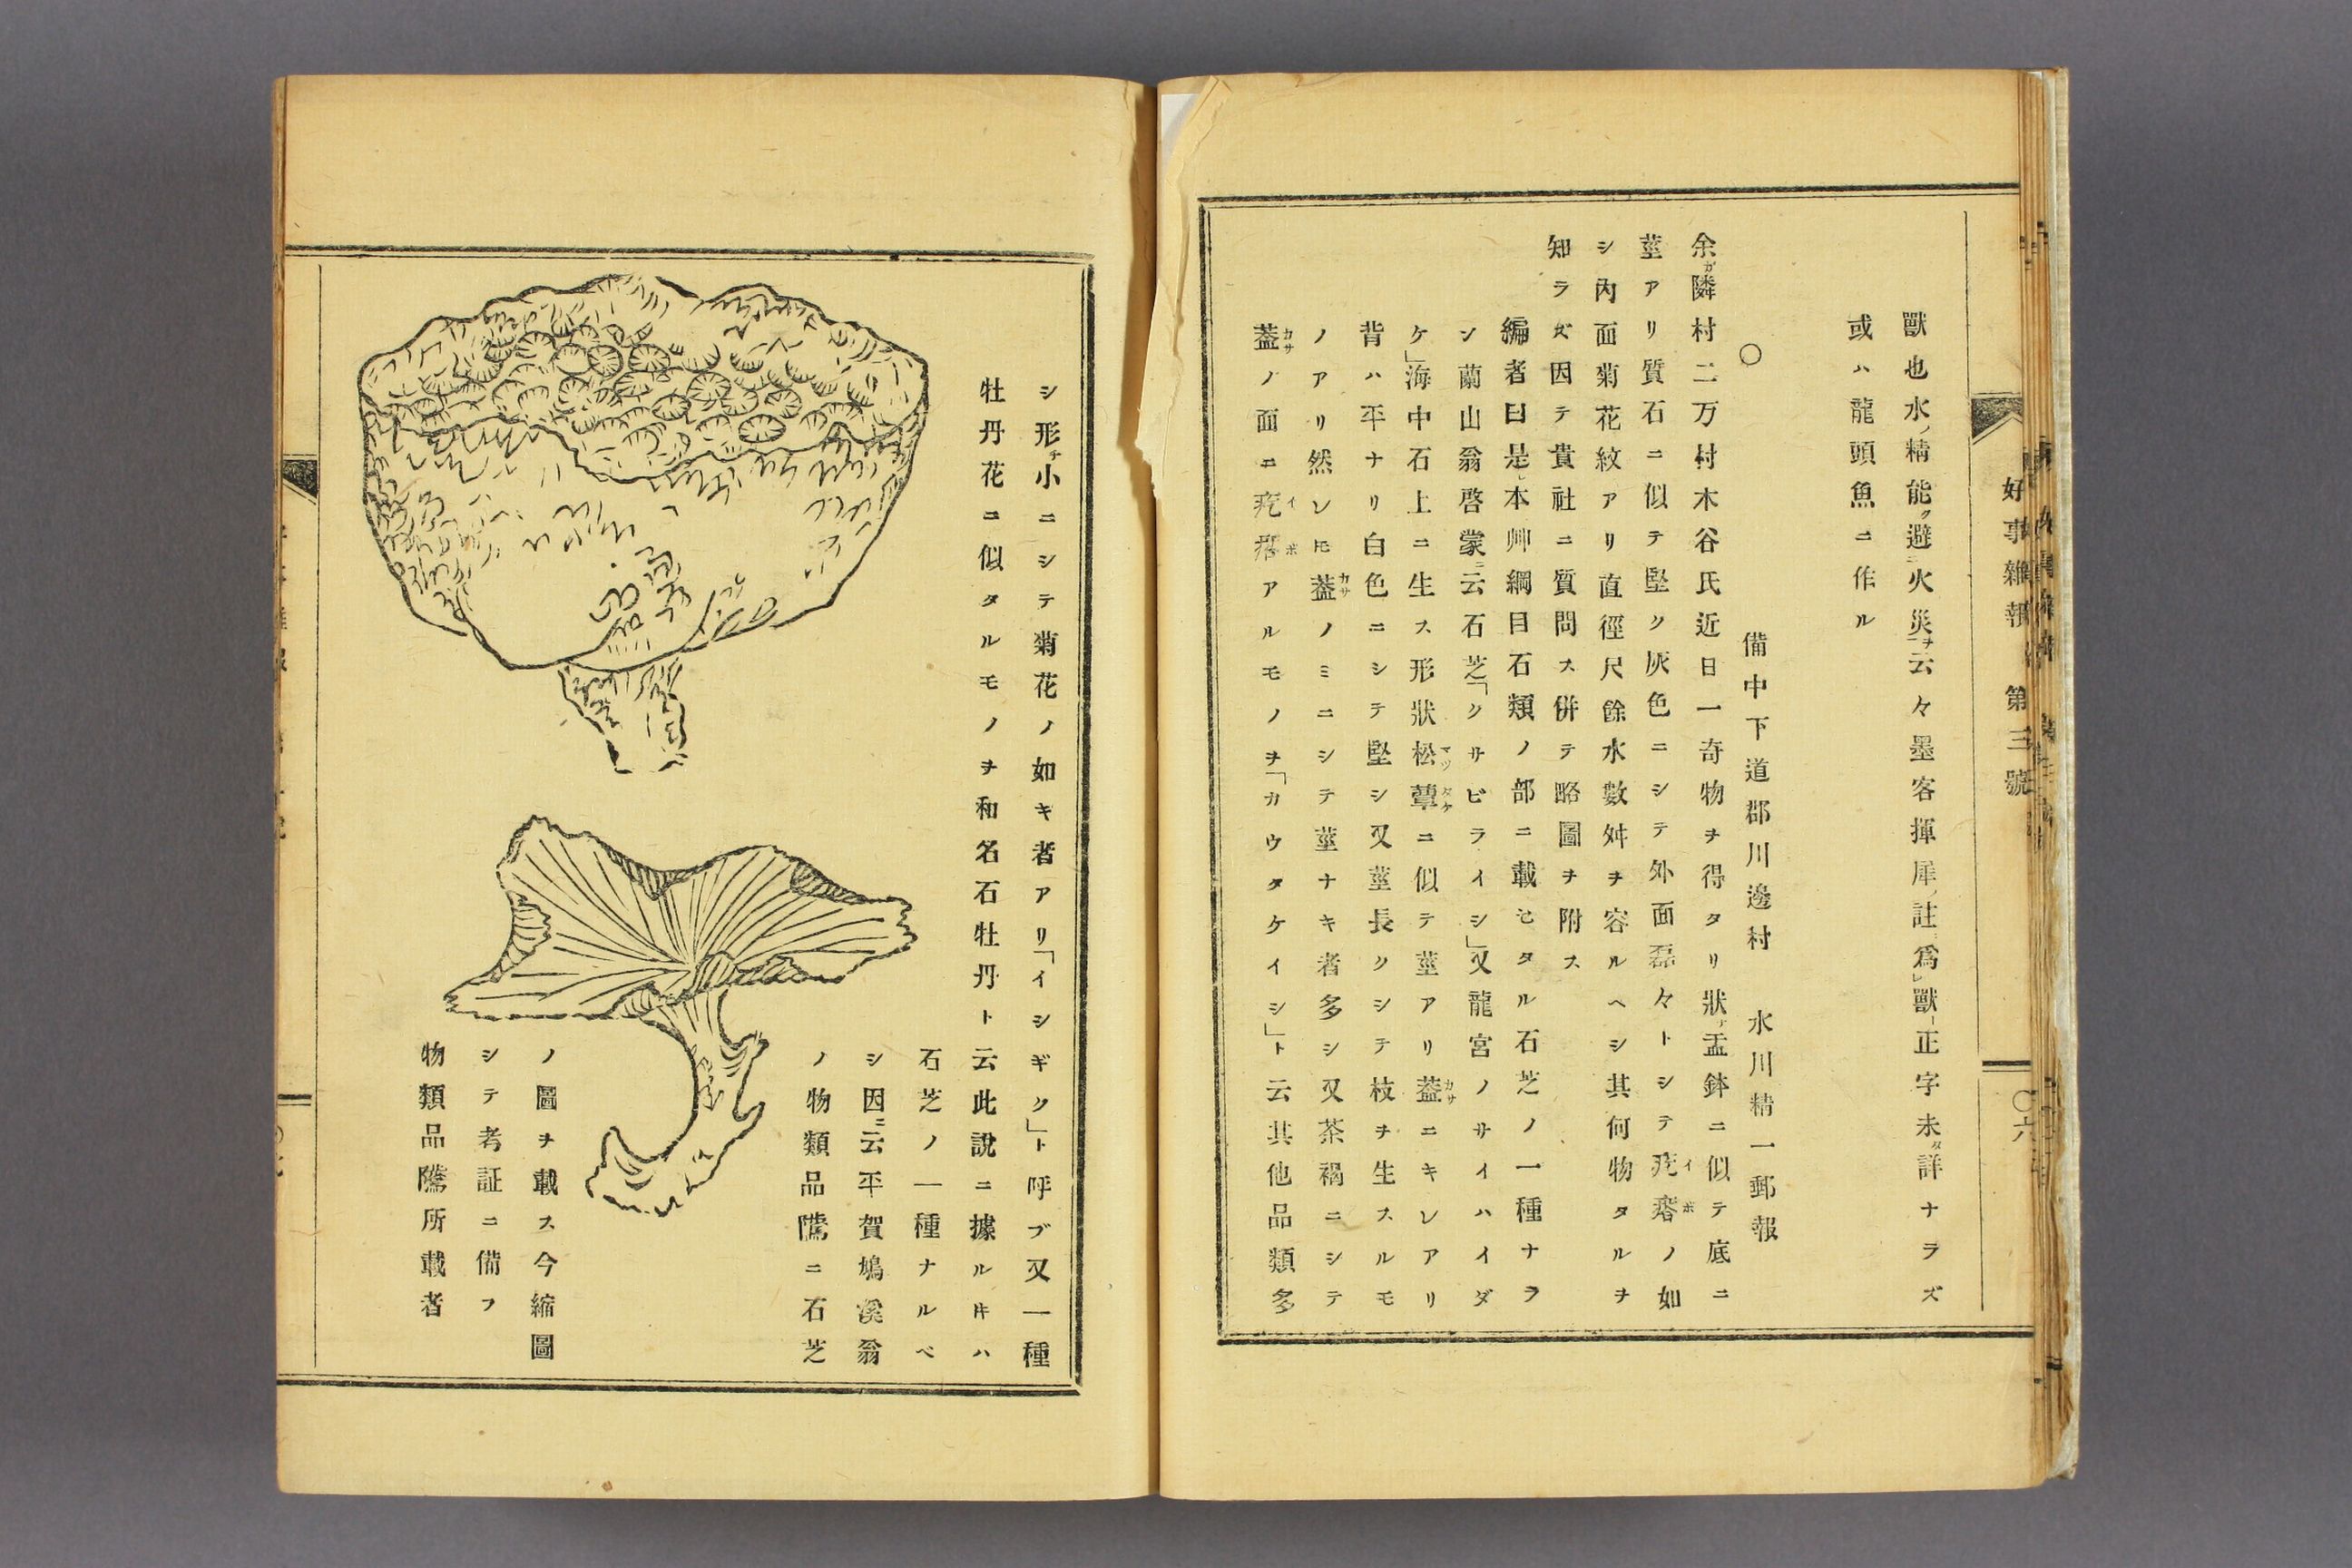 好事雜報 第三號
〇六
獸也水ノ精能ク避ニ火災ヲ云々墨客揮犀ノ註爲獸ー正字未タ詳ナラズ
或ハ龍頭魚ニ作ル
〇
備中下道郡川邊村 水川精一郵報
余ガ隣村二万村木谷氏近日一奇物ヲ得タリ狀チ盂鉢ニ似テ底ニ
莖アリ質石ニ似テ堅ク灰色ニシテ外面磊々トシテ疣瘩ノ如
シ內面菊花紋アリ直徑尺餘水數舛ヲ容ルヘシ其何物タルヲ
知ラズ因テ貴社ニ質問ス併テ略圖ヲ附ス
編者曰是レ本艸綱目石類ノ部ニ載セタル石芝ノ一種ナラ
ン蘭山翁啓蒙ニ云石芝「クサビライシ」又龍宮ノサイハイダ
ケ」海中石上ニ生ス形狀松蕈ニ似テ莖アリ葢ニキレアリ
背ハ平ナリ白色ニシテ堅シ又莖長クシテ枝チ生スルモ
ノアリ然レ𪜈葢ノミニシテ莖ナキ者多シ又茶褐ニシテ
葢ノ面ニ疣瘩アルモノヲ「カウタケイシ」ト云其他品類多
シ形チ小ニシテ菊花ノ如キ者アリ「イシギク」ト呼ブ又一種
牡丹花ニ似タルモノヲ和名石牡丹ト云此說ニ據ル𪜈ハ
石芝ノ一種ナルベ
シ因ニ云平賀鳩溪翁
ノ物類品隲ニ石芝
ノ圖ヲ載ス今縮圖
シテ考証ニ備フ
物類品隲所載者